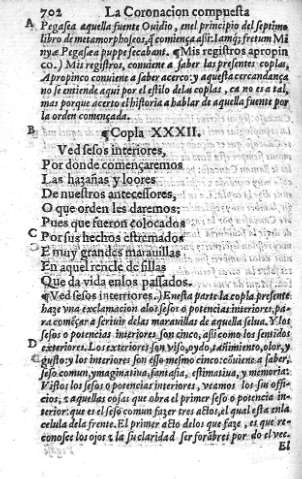 702 La Coronacion compuesta
A Pegasea aquella fuente Ouidio, enel principio del septimo
libro de metamorphoseos, q̃ comiença assi: Iamq́; fretum Mi
nyæ Pegasæa puppe secabant. ¶Mis registros apropin
co.) Mis registros, conuiene a saber las presentes coplas,
Apropinco conuiene a saber acerco: y aquesta cercandança
no se entiende aqui por el estilo delas coplas, ca no era tal,
mas porque acerto el historia a hablar de aquella fuente por
la orden començada.
B ¶Copla XXXII.
Ved sesos interiores,
Por donde començaremos
Las hazañas y loores
De nuestros antecessores,
O que orden les daremos:
Pues que fueron colocados
C Por sus hechos estremados
E muy grandes marauillas
En aquel rencle de sillas
Que da vida enlos passados.
¶Ved sesos interriores.) Enesta parte la copla presente
haze vna exclamacion alos sesos o potencias interiores, pa-
ra comẽçar a scriuir delas marauillas de aquella selua. Y los
sesos o potencias interiores son cinco, assi como los sentidos
D exteriores. Los exteriores son viso, oydo, tañimiento, olor, y
gusto: y los interiores son esso mesmo cinco: cõuiene a saber,
seso comun, ymaginatiua, fantasia, estimatiua, y memoria:
Vistos los sesos o potencias interiores, veamos los sus offi-
cios, & aquellas cosas que obra el primer seso o potencia in-
terior: que es el seso comun fazer tres actos, el qual esta enla
celula dela frente. El primer acto delos que faze, es que re-
conosce los ojos & la su claridad ser
El